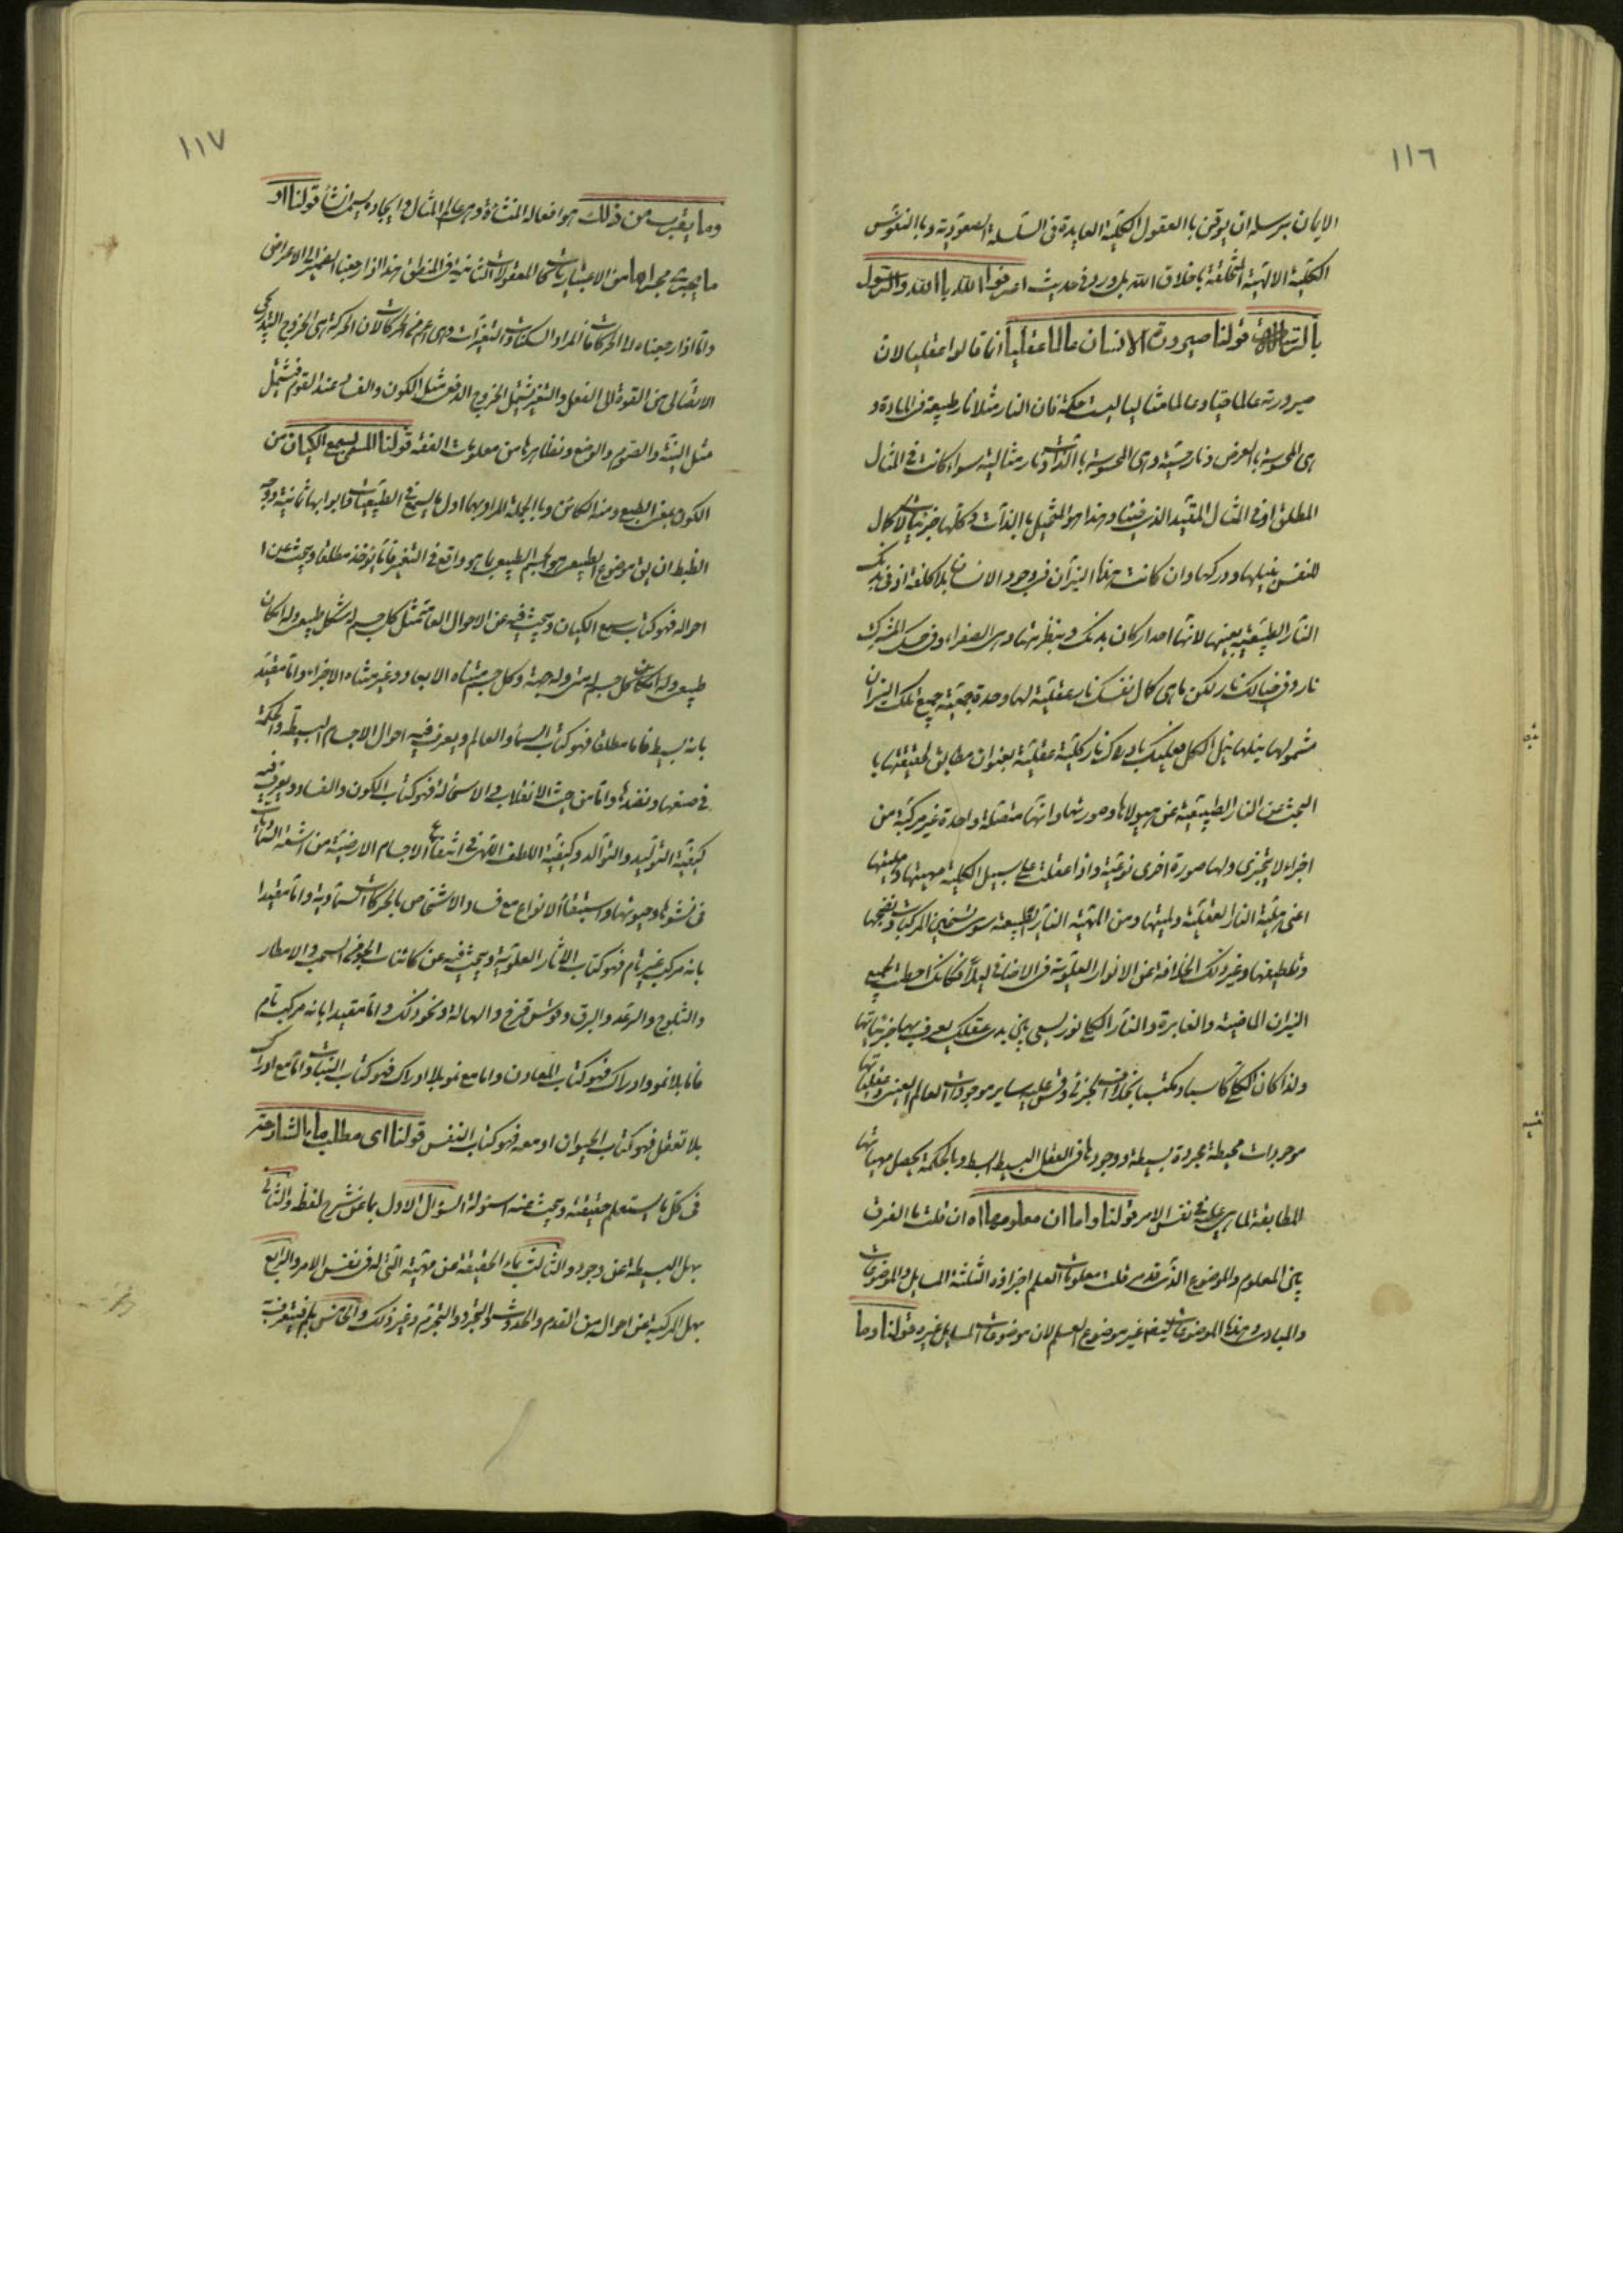 ١١٦
الايمان برسله ان يوقن بالعقول الكلية العايدة فى السلسلة الصعودية وبالنفوس
الكلية الالهية المتخلقة باخلاق الله بل ورد فى حديث اعرفوا الله بالله والرسول
بالرسالة قولنا صيرورة الانسان عالما عقليا انما قالوا عقليا لان
صيرورته عالما حسيا وعالما مثاليا ليست حكمة فان النار مثلا نار طبيعية فى المادة و
هى المحسوسة بالعرض ونار حسية وهى المحسوسة بالذات ونار مثالية سواء كانت فى المثال
المطلق او فى المثال المقيد الذى فينا وهذا هو المتخيل بالذات وكلها جزئيات لا كمال
للنفس بنيلها ودركها وان كانت هذه النيران فى وجود الانسان بلا كلفة اذ فى بدنك
النار الطبيعية بعينها لانها احد اركان بدنك وبنظيرتها وهى الصفراء وفى حسك المشترك
نار وفى خيالك نار لكن ما هى كمال نفسك نار عقلية لها وحدة جمعية جميع تلك النيران
مشمولها بنيلها ينل الكل فعليك بادراك نار كلية عقلية بعنوان مطابق لحقيقتها با
البحث عن النار الطبيعية عن هيولاها وصورتها وانها متصلة واحدة غير مركبة من
اجزاء لا يتجزى ولها صورة اخرى نوعية واذا عقلت على سبيل الكلية مهيتها وهليتها
اعنى هلية النار العقلية ولميتها ومن المهية النار الطبيعية سوى تسخين المركبات ونضجها
وتلطيفها وغير ذلك الخلافة عن الانوار العلوية فى الاضائة ليلا فكانك احطت بجميع
النيران الماضية والغابرة والنار الكلى نور يسعى بين يدى عقلك يعرف بها جزئياتها
ولذا كان الكلى كاسبا ومكتسبا بخلاف الجزئى وقس عليه ساير موجودات العالم العينى وعقلياتها
موجودات محيطة مجردة بسيطة ووجودها فى العقل البسيط ابسط وبالحكمة يحصل مهياتها
المطابقة لما هى عليه فى نفس الامر قولنا واما ان معلومها اه ان قلت ما الفرق
بين المعلوم والموضوع الذى قدم قلت معلومات العلم اجزاؤه الثلثة المسايل والموضوعات
والمبادى وهذه الموضوعات ايضا غير موضوع العلم لان موضوعات المسايل غيره قولنا وما
١١٧
وما يقرب من ذلك هو افعاله المنشأة وهى عالم المثال وايجاده يسمى انشأ قولنا او
ما يجرى مجراها من الاعتباريات كالمعقولات الثانية فى المنطق هذا اذا ارجعنا الضمير الى الاعراض
واما اذا ارجعناه الى الحركات فالمراد السكنات والتغيرات وهى اعم من الحركات لان الحركة هى الخروج التدريجى
الاتصالى من القوة الى الفعل والتغير يشمل الخروج الدفعى مثل الكون والفساد عند القوم فيشمل
مثل النية والصوم والوضع ونظايرها من معلومات الفقه قولنا المسمى بسمع الكيان من
الكون بمعنى الطبع ومنه الكائن وبالجملة المراد بها اول ما يسمع فى الطبيعيات وابوابها ثمانية ووجه
الضبط ان يق موضوع الطبيعى هو الجسم الطبيعى بما هو واقع فى التغير فاما يؤخذ مطلقا ويبحث عن ا
احواله فهو كتاب سمع الكيان ويبحث فيه عن الاحوال العامة مثل كل جسم له شكل طبيعى وله مكان
طبيعى وله مكان كل جسم له متى وله جهة وكل جسم متناه الابعاد وغير متناه الاجزاء واما مقيد
بانه بسيط فاما مطلقا فهو كتاب السماء والعالم ويعرف فيه احوال الاجسام البسيطة والحكمة
فى صنعها ونضدها واما من حيث الانقلاب والاستحالة فهو كتاب الكون والفساد ويعرف فيه
كيفية التوليد والتوالد وكيفية اللطف الالهى فى انتفاع الاجسام الارضية من اشعة السماويات
فى نشوها وحيوتها واستبقاء الانواع مع فساد الاشخاص بالحركات السماوية واما مقيدا
بانه مركب غير تام فهو كتاب الاثار العلوية ويبحث فيه عن كائنات الجو من السحب والامطار
والثلوج والرعد والبرق وقوس قزح والهالة ونحو ذلك واما مقيدا بانه مركب تام
فاما بلا نمو وادراك فهو كتاب المعادن واما مع نمو بلا ادراك فهو كتاب النبات واما مع ادراك
بلا تعقل فهو كتاب الحيوان او معه فهو كتاب النفس قولنا اى مطلب ما الشارحة
فى كل ما يستعلم حقيقته ويبحث عنه اسئولة السؤال الاول بما عن شرح لفظه والثانى
بهل البسيطة عن وجوده والثالث بماء الحقيقة عن مهيته التى له فى نفس الامر والرابع
بهل المركبة عن احواله من القدم والحدوث والتجرد والتجرم وغير ذلك والخامس بلم فيتعرف به